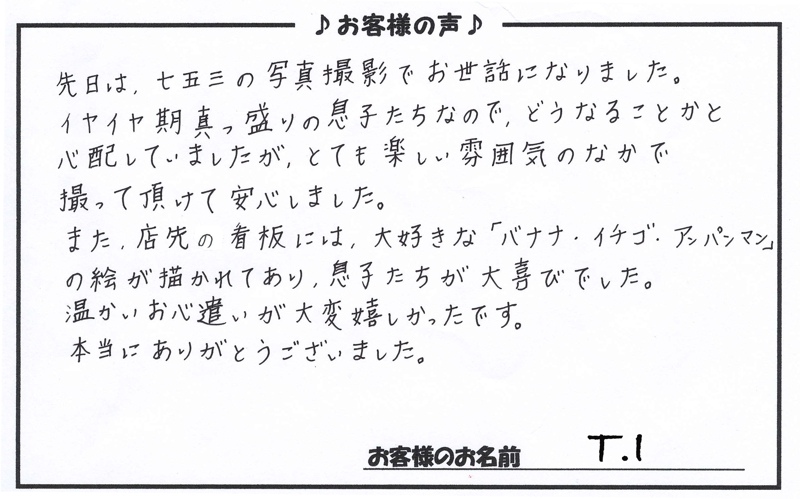 ♪お客様の声♪
先日は、七五三の写真撮影でお世話になりました。
イヤイヤ期真っ盛りの息子たちなので、どうなることかと
心配していましたが、とても楽しい雰囲気のなかで
撮って頂けて安心しました。
また、店先の看板には、大好きな「バナナ・イチゴ・アンパンマン」
の絵が描かれてあり、息子たちが大喜びでした。
温かいお心遣いが大変嬉しかったです。
本当にありがとうございました。
お客様のお名前 T.I